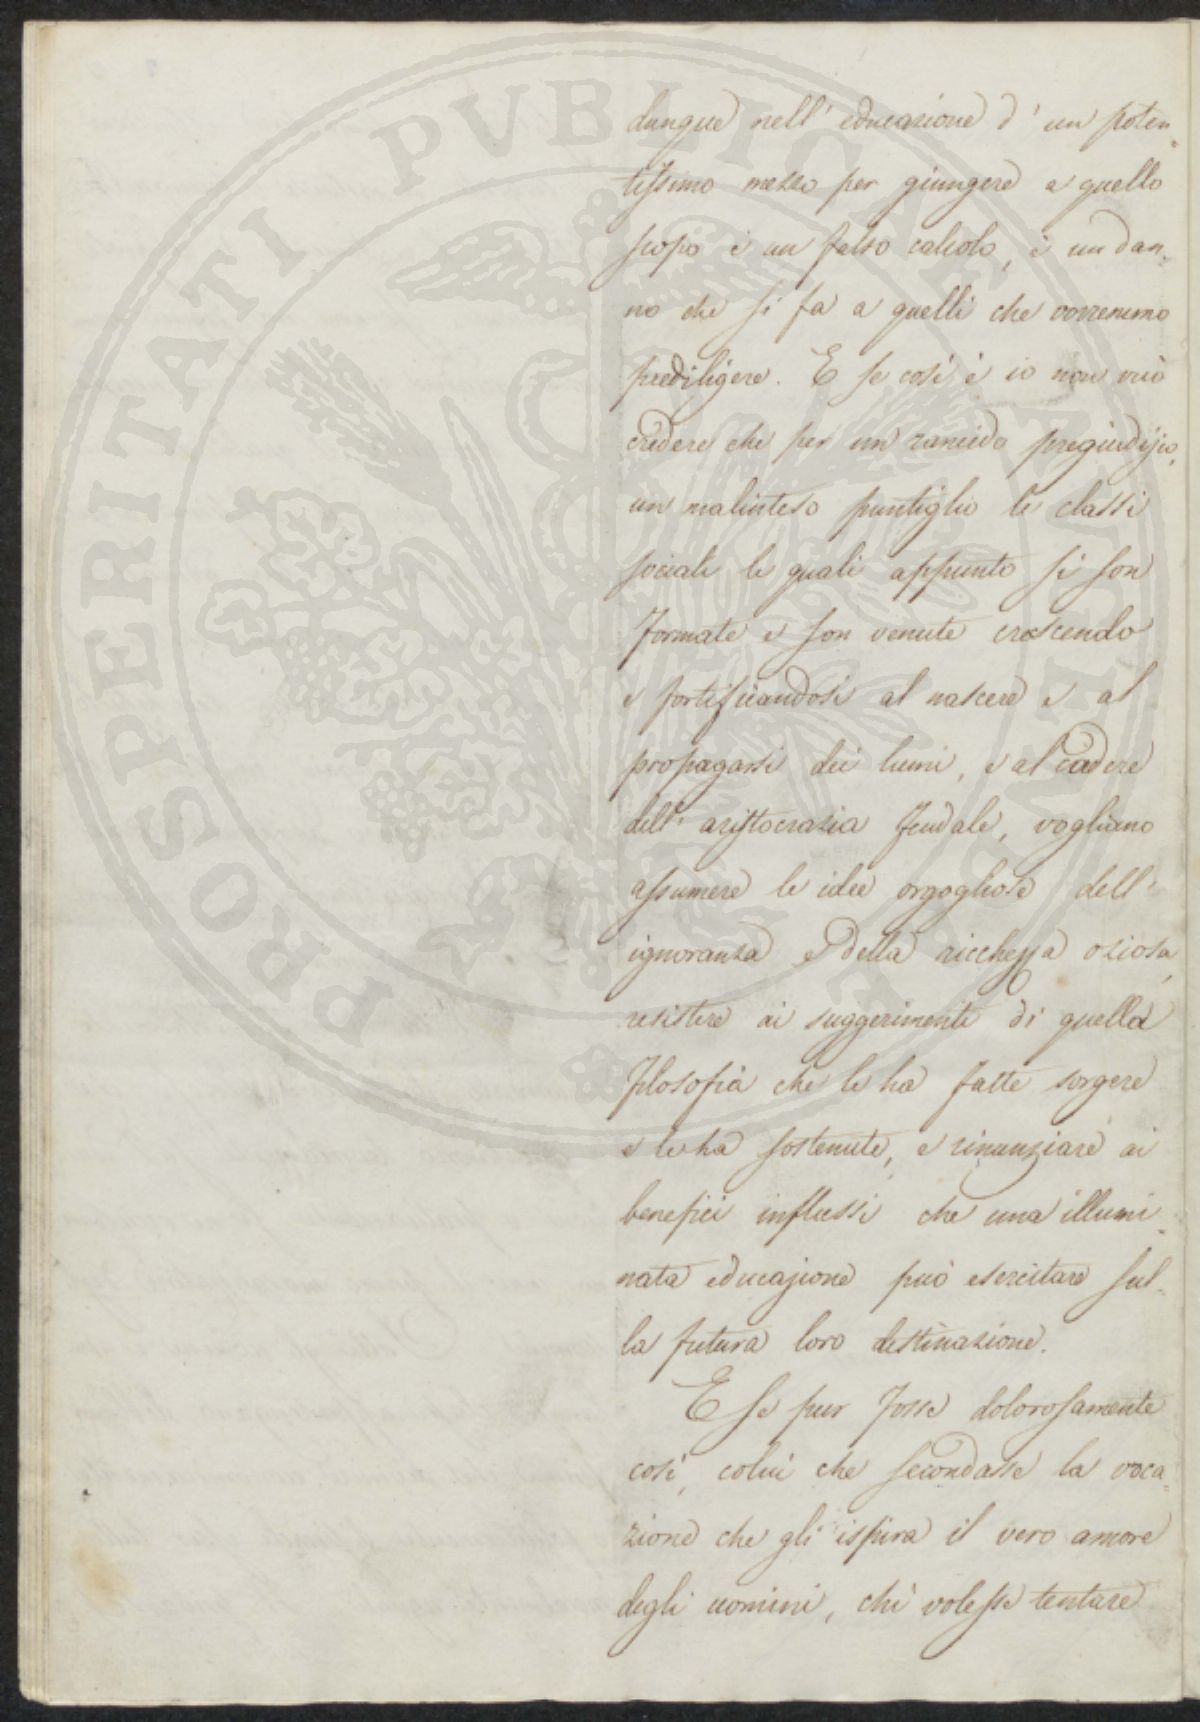 dunque nell' educazione d' un poten-
tissimo mezzo per giungere a quello
scopo è un falso calcolo, è un dan-
no che si fa a quelli che vorremmo
prediligere. E se così è io non vuò
credere che per un rancido pregiudizio,
un malinteso puntiglio le classi
sociali le quali appunto si son
formate e son venute crescendo
e fortificandosi al nascere e al
propagarsi dei lumi, e al cadere
dell' aristocrazia feudale, vogliano
assumere le idee orgogliose dell'
ignoranza e della ricchezza oziosa,
resistere ai suggerimenti di quella
filosofia che le ha fatte sorgere
e le ha sostenute, e rinunziare ai
benefici influssi che una illumi-
nata educazione può esercitare sul-
la futura loro destinazione.
E se pur fosse dolorosamente
così, colui che secondasse la voca-
zione che gli ispira il vero amore
degli uomini, chi volesse tentare
PROSPERITATI PVBLICAE AVGENDAE